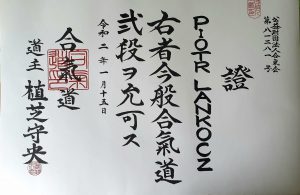 公益財団法人合気会
第八一二八一号
證
PIOTR LANKOCZ
右者今般合氣道
弐段ヲ允可ス
令和二年一月十五日
合氣道
道主 植芝守央